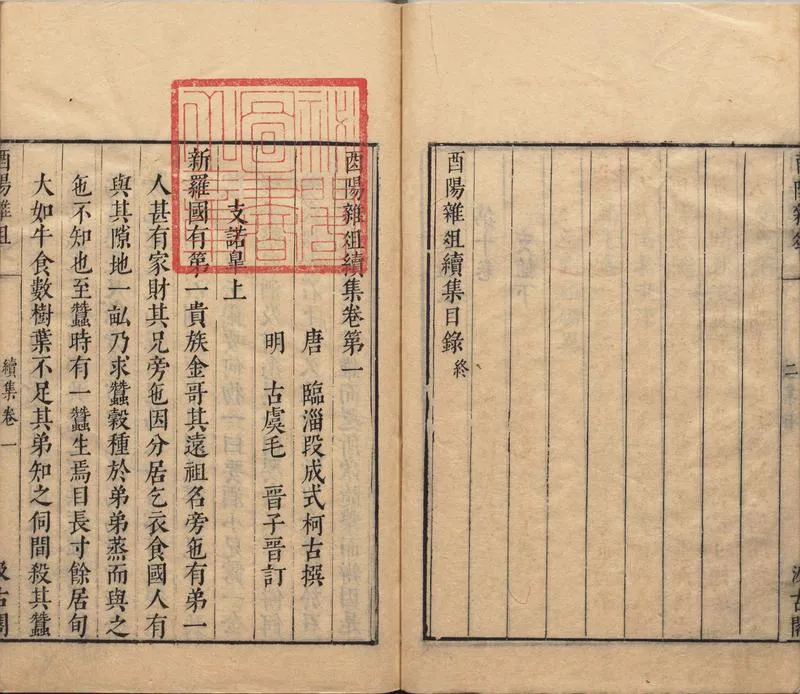 酉陽雜俎
二
汲古閣
酉陽雜俎續集目錄 終
酉陽雜俎續集卷第一
唐 臨淄段成式柯古撰
明 古虞毛 晉子晉訂
支諾皐上
新羅國有第一貴族金哥其遠祖名旁㐌有弟一
人甚有家財其兄旁㐌因分居乞衣食國人有
與其隙地一畝乃求蠶穀種於弟弟蒸而與之
㐌不知也至蠶時有一蠶生焉目長寸餘居旬
大如牛食數樹葉不足其弟知之伺間殺其蠶
酉陽雜俎
續集卷一
汲古閣